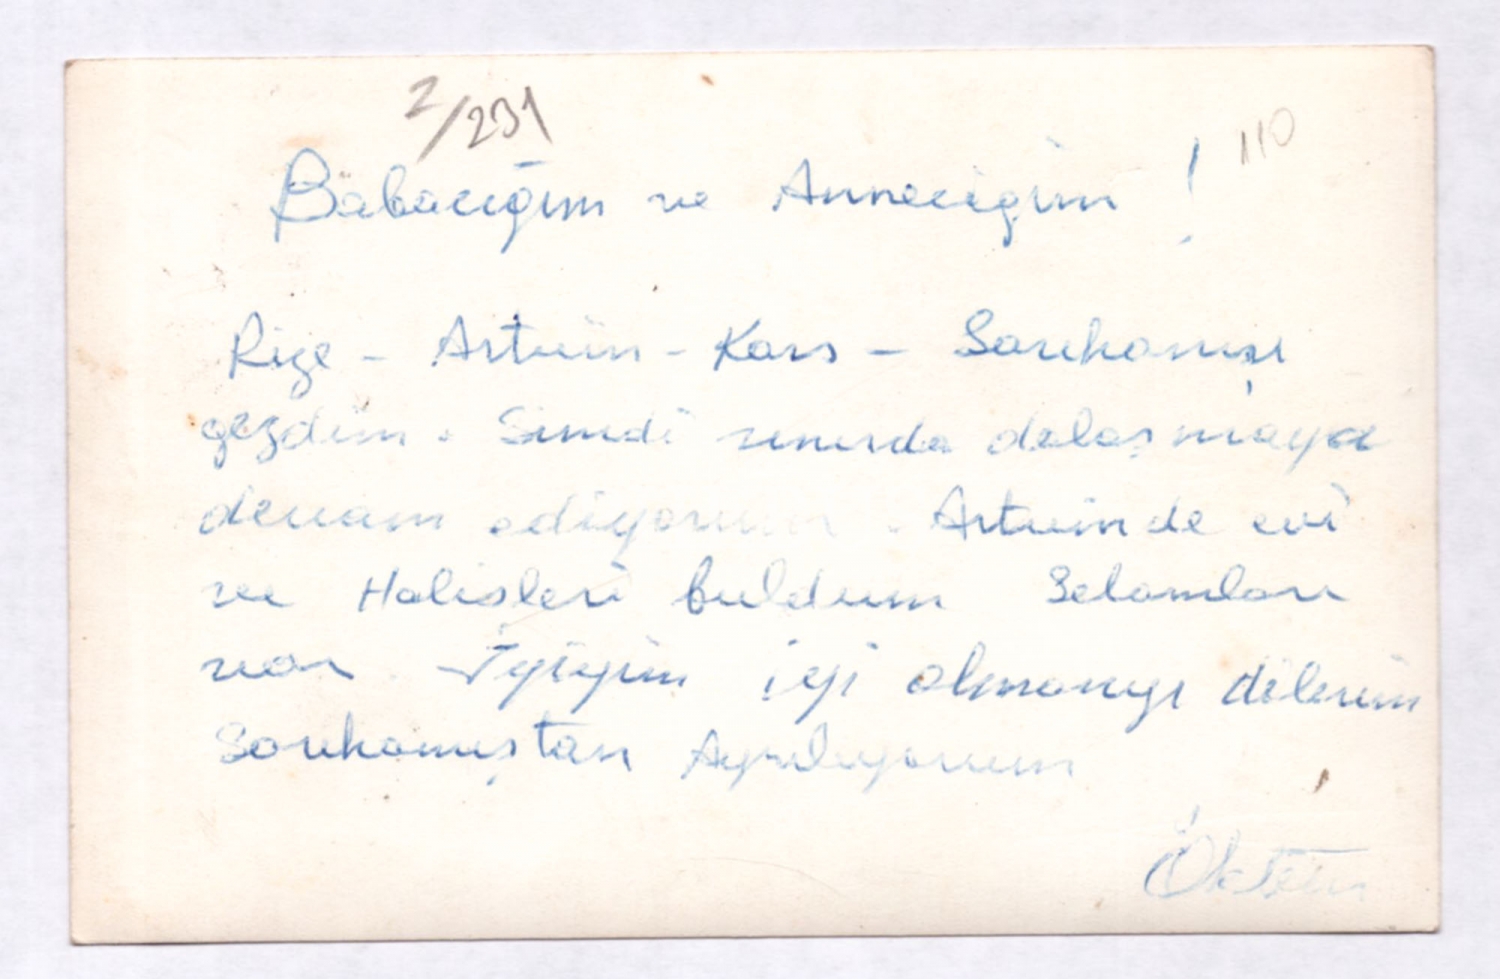 2/231
110
Babacığım ve Anneciğim !
Rize - Artvin - Kars - Sarıkamışı
gezdim. Şimdi sınırda dolaşmaya
devam ediyorum. Artvinde evi
ve Halisleri buldum Selamları
var. İyiyim iyi olmanızı dilerim
Sarıkamıştan Ayrılıyorum
Öktem